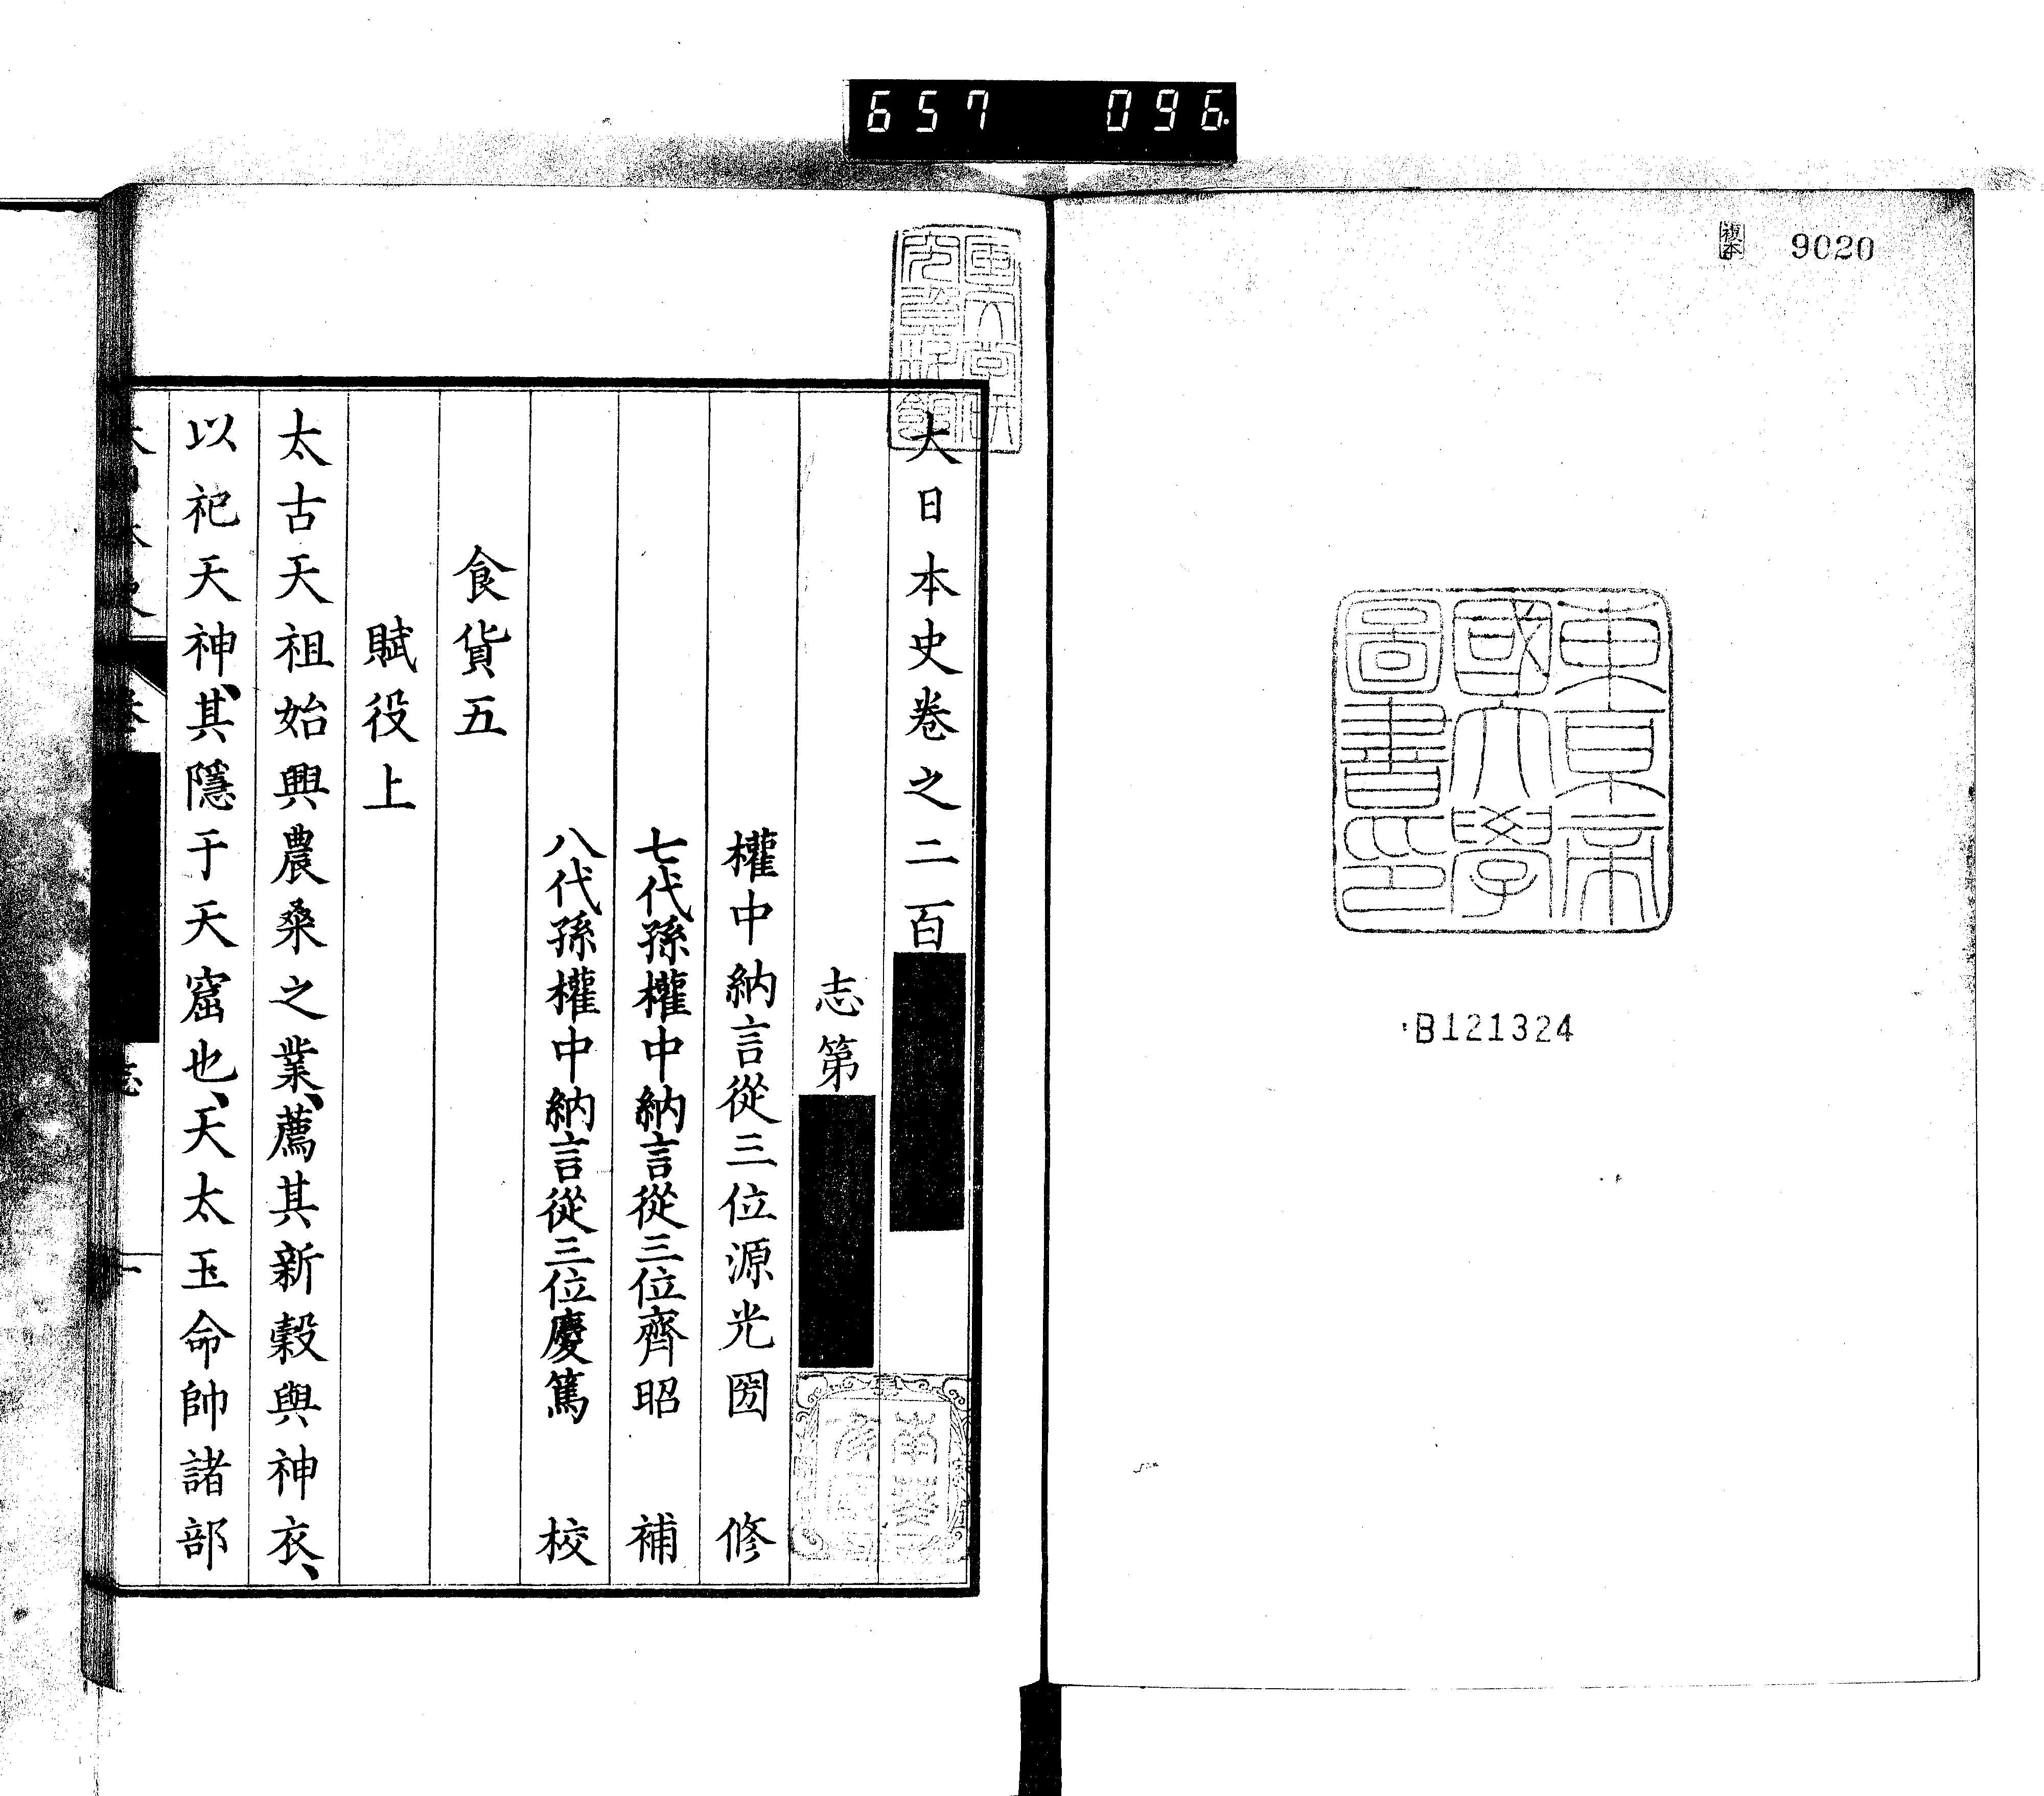 657 096
複本 9020
東京帝
國大學
圖書印
B121324
大日本史卷之二百
志第
權中納言從三位源光圀 修
七代孫權中納言從三位齊昭 補
八代孫權中納言從三位慶篤 校
食貨五
賦役上
太古天祖始興農桑之業、薦其新穀與神衣、
以祀天神、其隱于天窟也、天太玉命帥諸部